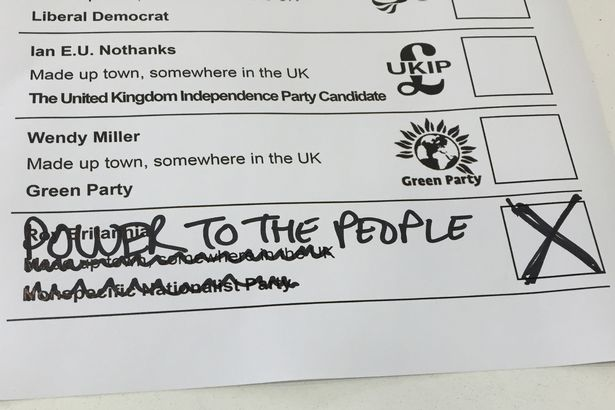 Liberal Democrat
Ian E.U. Nothanks
Made up town, somewhere in the UK
UKIP
The United Kingdom Independence Party Candidate
Wendy Miller
Made up town, somewhere in the UK
Green Party
Green Party
POWER TO THE PEOPLE
Made up town, somewhere in the UK
Nationalist Party
X